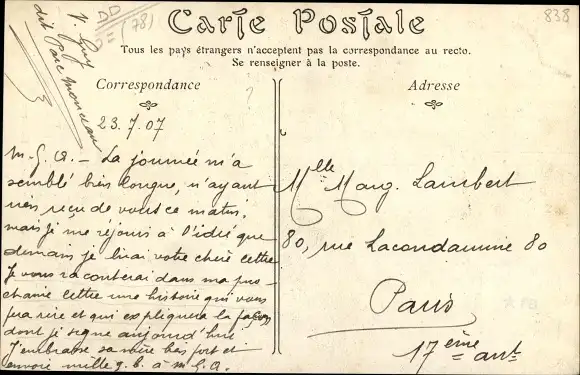 Carte Postale
838
AD
(78)
V. Guy
dit Parc Monceau
Tous les pays étrangers n'acceptent pas la correspondance au recto.
Se renseigner à la poste.
Correspondance
Adresse
23.7.07
M.G.A. – La journée m'a
semblé bien longue, n'ayant
rien reçu de vous ce matin,
mais je me réjouis à l'idée que
demain je lirai votre chère lettre
Je vous raconterai dans ma pro-
chaine lettre une histoire qui vous
fera rire et qui expliquera la façon
dont je signe aujourd'hui
J'embrasse sa mère bien fort et
encore mille g. b. à m. G. A.
Mlle Marg. Lambert
80, rue Lacondamine 80
Paris
17ème arrt